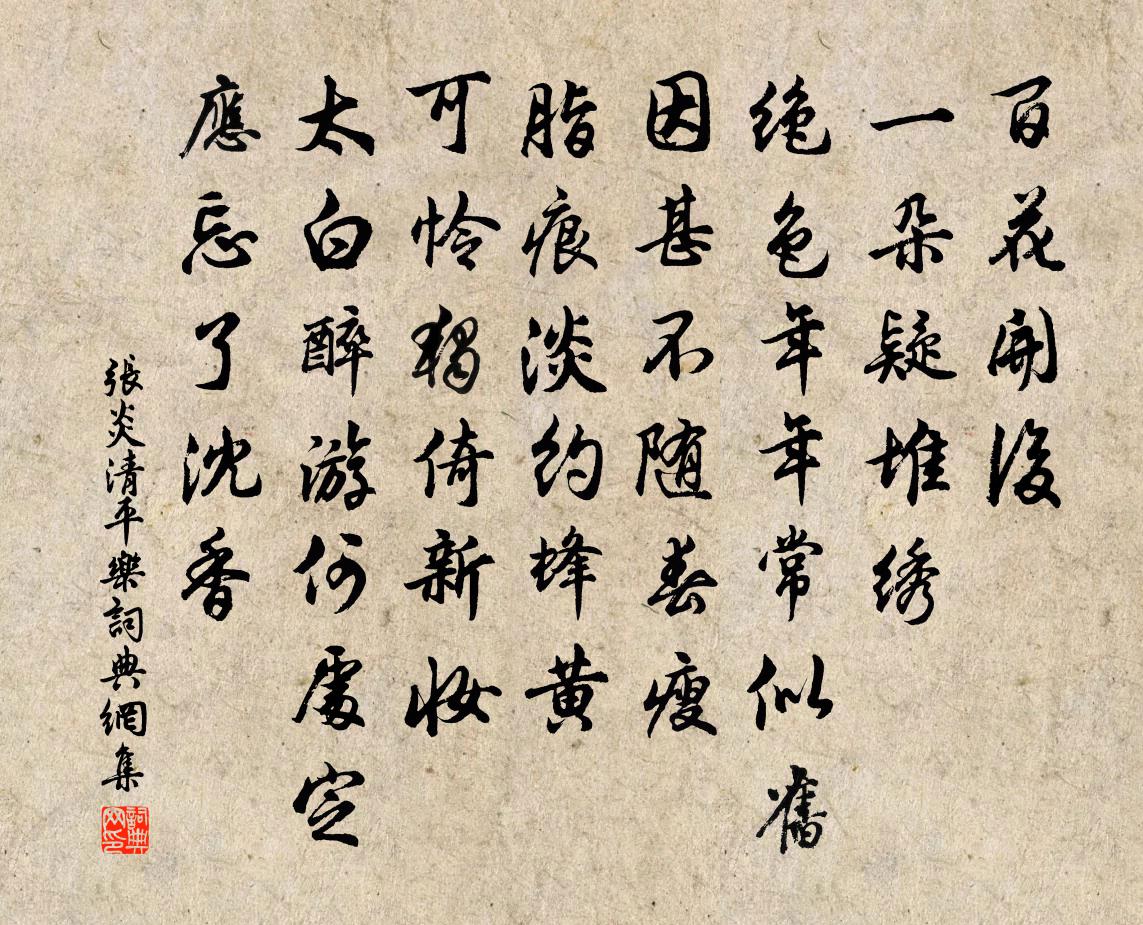 百花開後
一朵疑堆绣
绝色年年常似舊
因甚不随春瘦
脂痕淡约蜂黄
可怜獨倚新妝
太白醉游何處定
應忘了沈香
張炎清平樂詞典網集
詞典網印